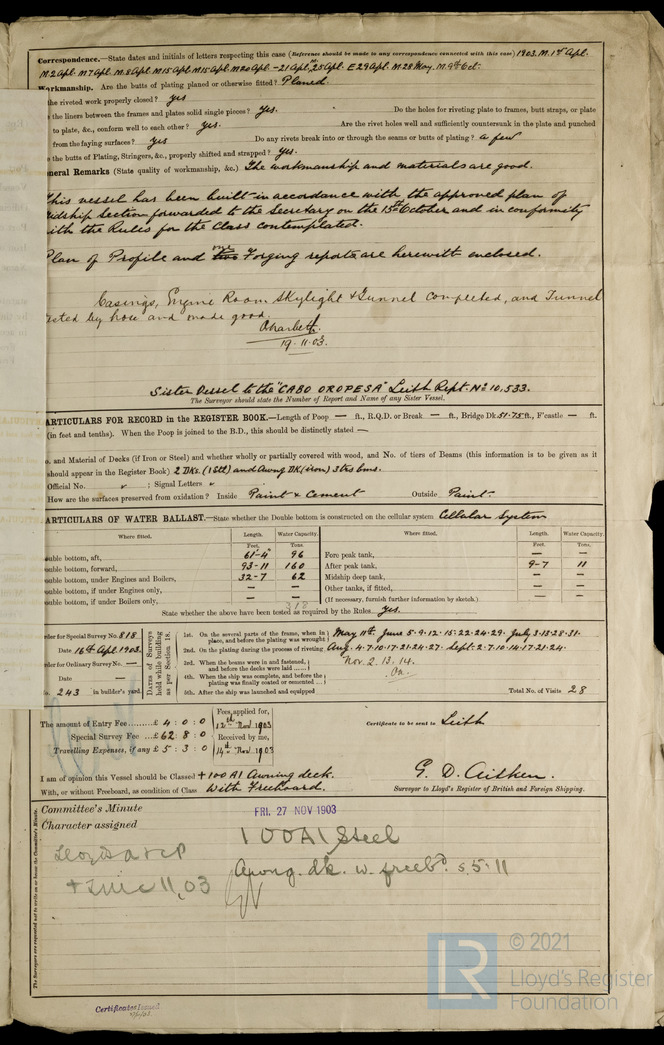 Correspondence.—State dates and initials of letters respecting this case (Reference should be made to any correspondence connected with this case) 1903. M. 1st Apl.
M. 2 Apl. M. 7 Apl. M. 8 Apl. M. 15 Apl. M. 15 Apl. M. 20 Apl. - 21 Apl. 25 Apl. E 29 Apl. M. 28 May. M. 9th Oct.
Workmanship. Are the butts of plating planed or otherwise fitted? Planed.
the riveted work properly closed? yes
the liners between the frames and plates solid single pieces? yes. Do the holes for riveting plate to frames, butt straps, or plate
to plate, &c., conform well to each other? yes. Are the rivet holes well and sufficiently countersunk in the plate and punched
from the faying surfaces? yes Do any rivets break into or through the seams or butts of plating? a few
the butts of Plating, Stringers, &c., properly shifted and strapped? yes.
neral Remarks (State quality of workmanship, &c.) The workmanship and materials are good.
This vessel has been built in accordance with the approved plan of
idship Section forwarded to the Secretary on the 15th October and in conformity
ith the Rules for the Class contemplated.
Plan of Profile and two one Forging reports are herewith enclosed.
Casings, Engine Room Skylight & Tunnel completed, and Tunnel
sted by hose and made good.
19.11.03.
Sister Vessel to the "CABO OROPESA" Leith Rept. No 10,533.
The Surveyor should state the Number of Report and Name of any Sister Vessel.
ARTICULARS FOR RECORD in the REGISTER BOOK.—Length of Poop — ft., R.Q.D. or Break — ft., Bridge Dk 51.75 ft., F'castle — ft.
(in feet and tenths). When the Poop is joined to the B.D., this should be distinctly stated —
o. and Material of Decks (if Iron or Steel) and whether wholly or partially covered with wood, and No. of tiers of Beams (this information is to be given as it
should appear in the Register Book) 2 DKs. (1 stl) and Awng DK (iron) 3 trs bms.
Official No. " ; Signal Letters "
How are the surfaces preserved from oxidation? Inside Paint & Cement Outside Paint.
ARTICULARS OF WATER BALLAST.—State whether the Double bottom is constructed on the cellular system Cellular System
Where fitted. Length. Water Capacity. Where fitted. Length. Water Capacity.
Feet. Tons. Feet. Tons.
ouble bottom, aft, 61-4" 96 Fore peak tank, — —
ouble bottom, forward, 93-11 160 After peak tank, 9-7 11
ouble bottom, under Engines and Boilers, 32-7 62 Midship deep tank, — —
ouble bottom, if under Engines only, — — Other tanks, if fitted, — —
ouble bottom, if under Boilers only, — — (If necessary, furnish further information by sketch.)
318
State whether the above have been tested as required by the Rules yes.
der for Special Survey No. 818
Date 16th Apl. 1903.
der for Ordinary Survey No. —
Date —
243 in builder's yard.
Dates of Surveys held while building as per Section 18.
1st. On the several parts of the frame, when in place, and before the plating was wrought May 11th. June 5.9.12.15.22.24.29. July 3.13.28.31.
2nd. On the plating during the process of riveting Aug. 4.7.10.17.21.24.27. Sept. 2.7.10.14.17.21.24.
3rd. When the beams were in and fastened, and before the decks were laid Nov 2.13.14.
4th. When the ship was complete, and before the plating was finally coated or cemented
5th. After the ship was launched and equipped Total No. of Visits 28
The amount of Entry Fee £ 4 : 0 : 0
Special Survey Fee £ 62 : 8 : 0
Travelling Expenses, if any £ 5 : 3 : 0
Fees applied for,
12th Nov. 1903
Received by me,
14th Nov. 1903
Certificate to be sent to Leith
I am of opinion this Vessel should be Classed +100 A1 Awning deck.
With, or without Freeboard, as condition of Class With Freeboard.
G. D. Aitken.
Surveyor to Lloyd's Register of British and Foreign Shipping.
Committee's Minute
FRI. 27 NOV 1903
Character assigned
100A1 Steel
Awng. dk. w. freebd. 5.5.11
Lloyds a & c P
+ LMC 11,03
The Surveyors are requested not to write on or below the Committee's Minute.
Certificates Issued
© 2021
LR
Lloyd's Register
Foundation